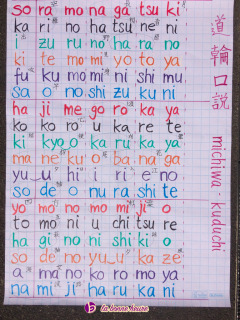 so ra mo na ga tsu ki
ka ri no ha tsu ne ni
i zu ru no ha ra no
ki te mo mi yo to ya
fu ku mo mi ni shi mu
sa o no shi zu ku ni
ha ji me go ro ka ya
ko ko ro u ka re te
ki kyo o ka ru ka ya
ma ne ku o ba na ga
yu u hi i ri e no
so de o nu ra shi te
yo mo no mo mi ji o
to mo ni u chi tsu re
ha gi no ni shi ki o
so de no yu u ka ze
a ma no ko ro mo ya
na mi ji ha ru ka ni
道輪口説
michiwa kuduchi
la bonne heure